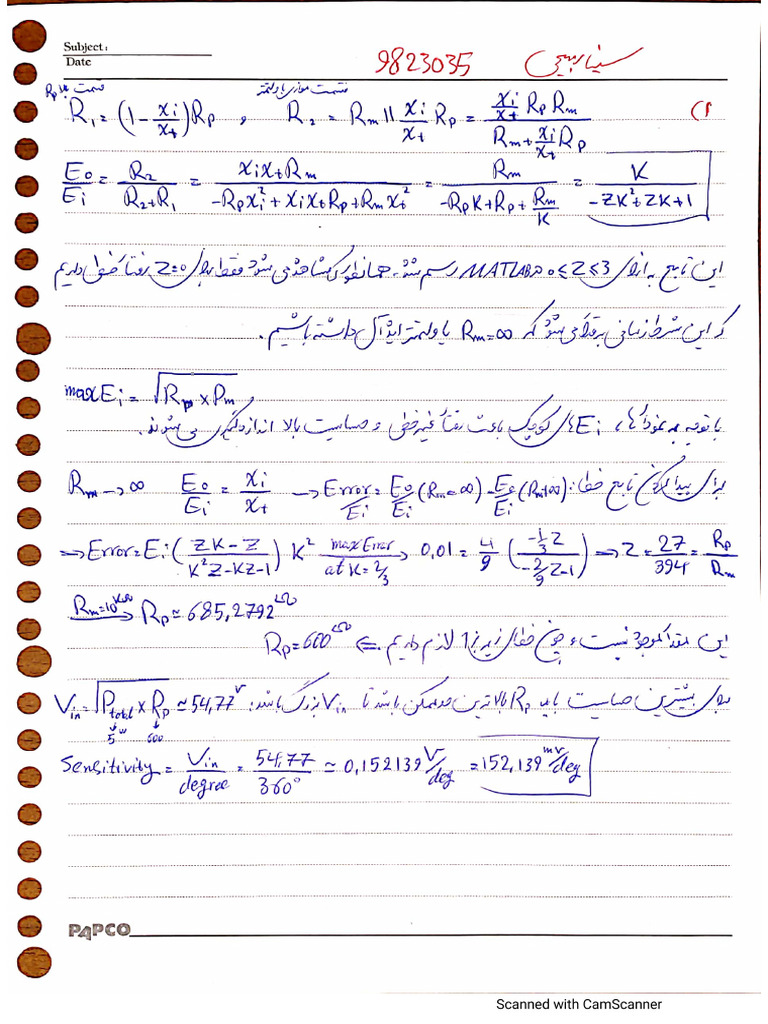 Subject:
Date
9823035 سینا ربیعی
قسمت بالا Rp قسمت موازی با ولتمتر
R₁ = (1 - xi/xt)Rp , R₂ = Rm || xi/xt Rp = (xi/xt Rp Rm)/(Rm + xi/xt Rp) (1
Eo/Ei = R₂/(R₂+R₁) = (xi xt Rm)/(-Rp xi² + xi xt Rp + Rm xt²) = Rm/(-RpK + Rp + Rm/K) = K/(-ZK² + ZK + 1)
این تابع به ازای 0≤Z≤3 در MATLAB رسم شد. همانطور که مشاهده می شود فقط برای Z=0 رفتار خطی داریم
که این شرط زمانی برقرار می شود که Rm=∞ یا ولتمتر ایده آل داشته باشیم.
max Ei = √(Rp × Pm)
با توجه به نمودارها، Ei های کوچک باعث رفتار غیرخطی و حساسیت بالا اندازه گیری می شوند.
برای پیدا کردن تابع خطا: Rm → ∞ Eo/Ei = xi/xt → Error/Ei = Eo/Ei (Rm=∞) - Eo/Ei (Rm≠∞)
⇒ Error = Ei((ZK - Z)/(K²Z - KZ - 1)) K² max Error at K=2/3 → 0,01 = 4/9 ((-1/3 Z)/(-2/9 Z - 1)) ⇒ Z = 27/394 = Rp/Rm
Rm=10^KΩ → Rp ≃ 685,2792^Ω
این مقدار موجود نیست و چون خطای زیر 1٪ لازم داریم ⇒ Rp=600^Ω
برای بیشترین حساسیت باید Rp بالاترین حد ممکن باشد تا Vin بزرگ باشد: Vin = √(Ptotal × Rp) ≃ 54,77^V
5^W 600
Sensitivity = Vin/degree = 54,77/360° ≃ 0,152139 V/deg = 152,139 mV/deg
PAPCO
Scanned with CamScanner